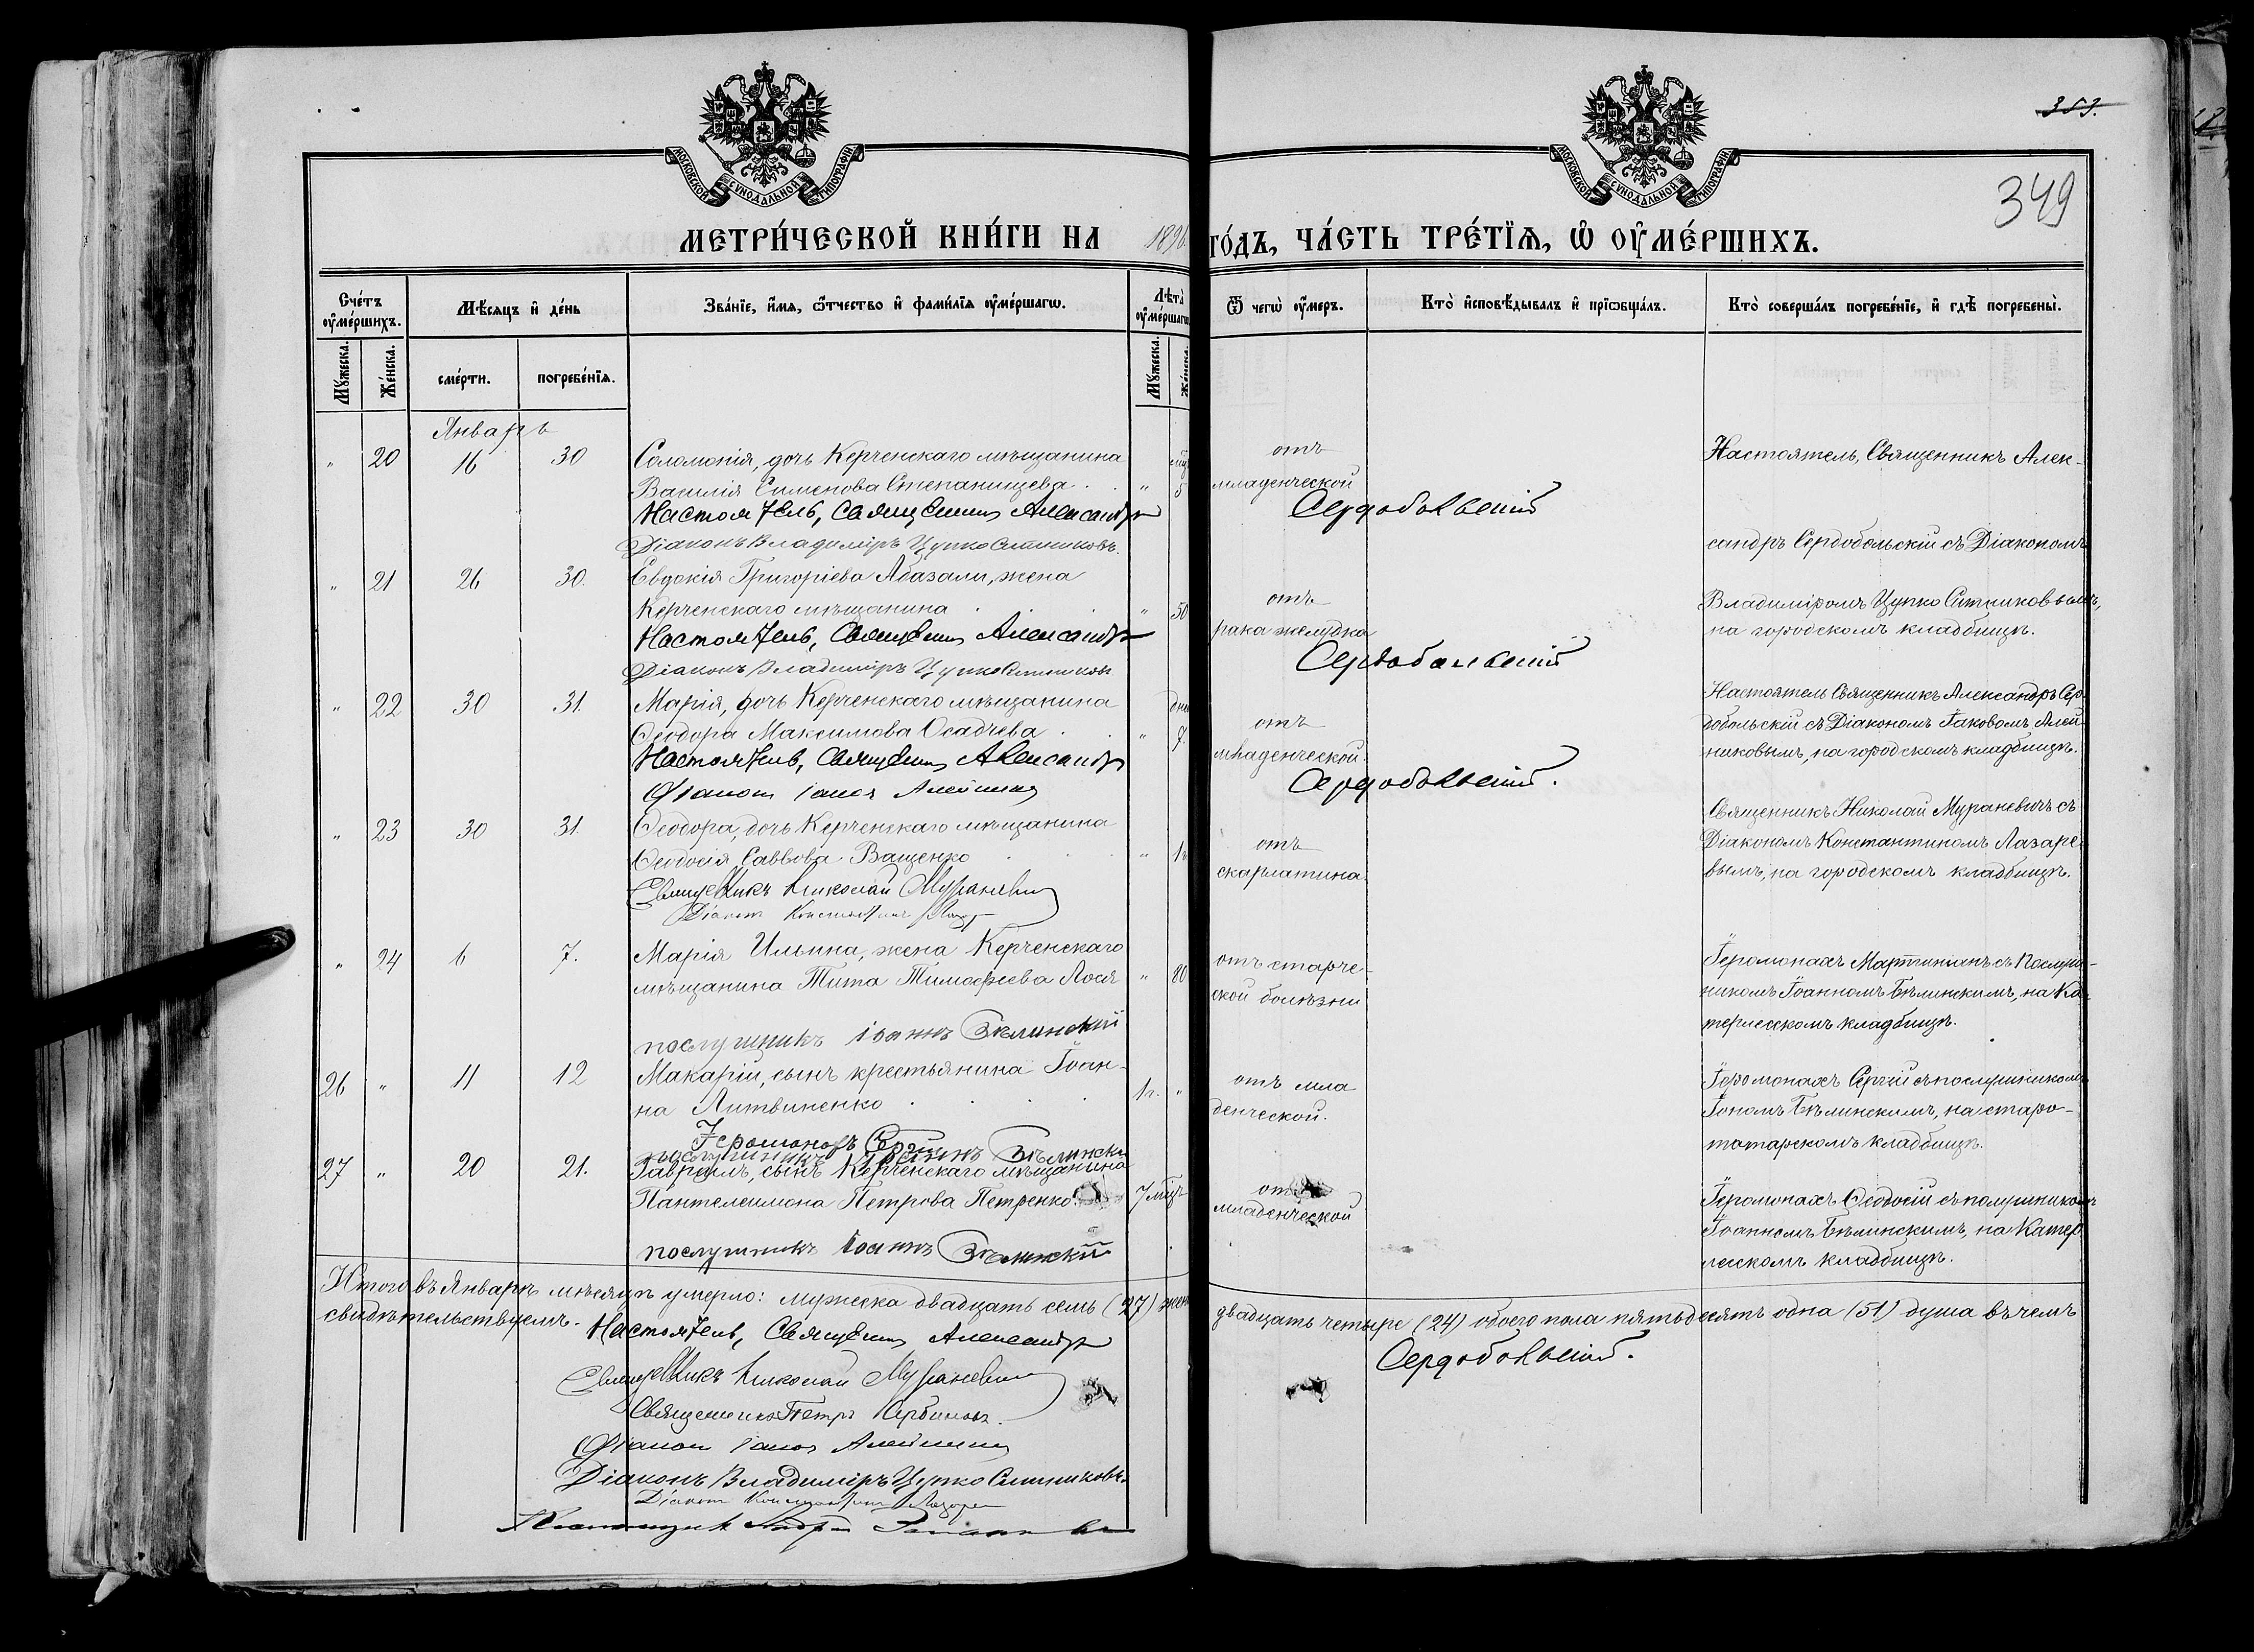 МОСКОВСКОЙ СУНОДАЛЬНОЙ ТИПОГРАФІИ
МОСКОВСКОЙ СУНОДАЛЬНОЙ ТИПОГРАФІИ
353.
349
МЕТРИ́ЧЕСКОЙ КНИ́ГИ НА 1896
ГО́ДЪ, ЧА́СТЬ ТРЕ́ТЇѦ, Ѡ ОУ҆МЕ́РШИХЪ.
Сче́тъ оу҆ме́ршихъ.
Мѣ́сяцъ и҆ де́нь
Зва́нїе, и҆́мя, ѻ҆́тчество и҆ фами́лїя оу҆ме́ршагѡ.
Лѣта̀ оу҆ме́ршагѡ
Ѿ чегѡ̀ оу҆́меръ.
Кто̀ и҆сповѣ́дывалъ и҆ прїѡбща́лъ.
Кто̀ соверша́лъ погребе́нїе, и҆ гдѣ̀ погребены̀.
Му́жеска.
Же́нска.
сме́рти.
погребе́нїя.
Му́жеска.
Же́нска.
Январь
" 20 16 30 Соломонія, дочь Керченскаго мѣщанина
Василія Сименова Степанищева . . " 5
Настоятель, Священникъ Александръ
Діаконъ Владиміръ Цупко Ситниковъ.
отъ
младенческой
Сердобольскій
Настоятель, Священникъ Алек-
сандръ Сердобольскій съ Діакономъ
" 21 26 30. Евдокія Григоріева Абазали, жена
Керченскаго мѣщанина . . " 50
Настоятель, Священникъ Александръ
Діаконъ Владиміръ Цупко Ситниковъ
отъ
рака желудка
Сердобольскій
Владиміромъ Цупко Ситниковымъ,
на городскомъ кладбищѣ.
" 22 30 31. Марія, дочь Керченскаго мѣщанина дне
Ѳеодора Максимова Осадчева . . " 7.
Настоятель, Священникъ Александръ
Діаконъ Іаковъ Алейниковъ
отъ
младенческой.
Сердобольскій.
Настоятель Священникъ Александръ Сер-
добольскій съ Діакономъ Іаковомъ Алей-
никовымъ, на городскомъ кладбищѣ.
" 23 30 31. Ѳеодора, дочь Керченскаго мѣщанина
Ѳеодосія Саввова Ващенко . . . " 1г
Священникъ Николай Мураневичъ
Діаконъ Константинъ Лазаревъ
отъ
скарлатина.
Священникъ Николай Мураневичъ съ
Діакономъ Константиномъ Лазаре-
вымъ, на городскомъ кладбищѣ.
" 24 6 7. Марія Ильина, жена Керченскаго
мѣщанина Тита Тимоѳеева Лося " 80
послушникъ Іоаннъ Бѣлинскій
отъ старче-
ской болѣзни
Іеромонахъ Мартиніанъ съ Послуш-
никомъ Іоанномъ Бѣлинскимъ, на Ка-
терлесскомъ кладбищѣ.
26 " 11 12 Макарій, сынъ крестьянина Іоан-
на Литвиненко . . . . 1г. "
Іеромонахъ Сергій
послушникъ Іоаннъ Бѣлинскій
отъ мла
денческой.
Іеромонахъ Сергій съ послушникомъ
Іоаномъ Бѣлинскимъ, на старо-
татарскомъ кладбищѣ.
27 " 20 21. Гавріилъ, сынъ Керченскаго мѣщанина
Пантелеимона Петрова Петренко. 7 мѣц
послушникъ Іоаннъ Бѣлинскій
отъ
младенческой
Іеромонахъ Ѳеодосій съ послушникомъ
Іоанномъ Бѣлинскимъ, на Катер
лесскомъ кладбищѣ.
Итого въ Январѣ мѣсяцѣ умерло: мужеска двадцать семь (27) жен
двадцать четыре (24) обоего пола пятьдесятъ одна (51) душа въ чемъ
свидѣтельствуемъ.
Настоятель, Священникъ Александръ Сердобольскій.
Священникъ Николай Мураневичъ
Священникъ Петръ Сербиновъ.
Діаконъ Іаковъ Алейниковъ
Діаконъ Владиміръ Цупко Ситниковъ.
Діаконъ Константинъ Лазаревъ